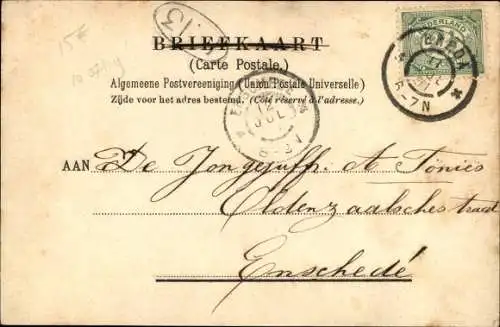 15€
13
NEDERLAND
BREDA
6-7N
BRIEFKAART
(Carte Postale.)
Algemeene Postvereeniging (Union Postale Universelle)
Zijde voor het adres bestemd. (Côté réservé à l'adresse.)
12
JUL
AAN De Jongejuffr. A Tonies
Oldenzaalschestraat
Enschedé